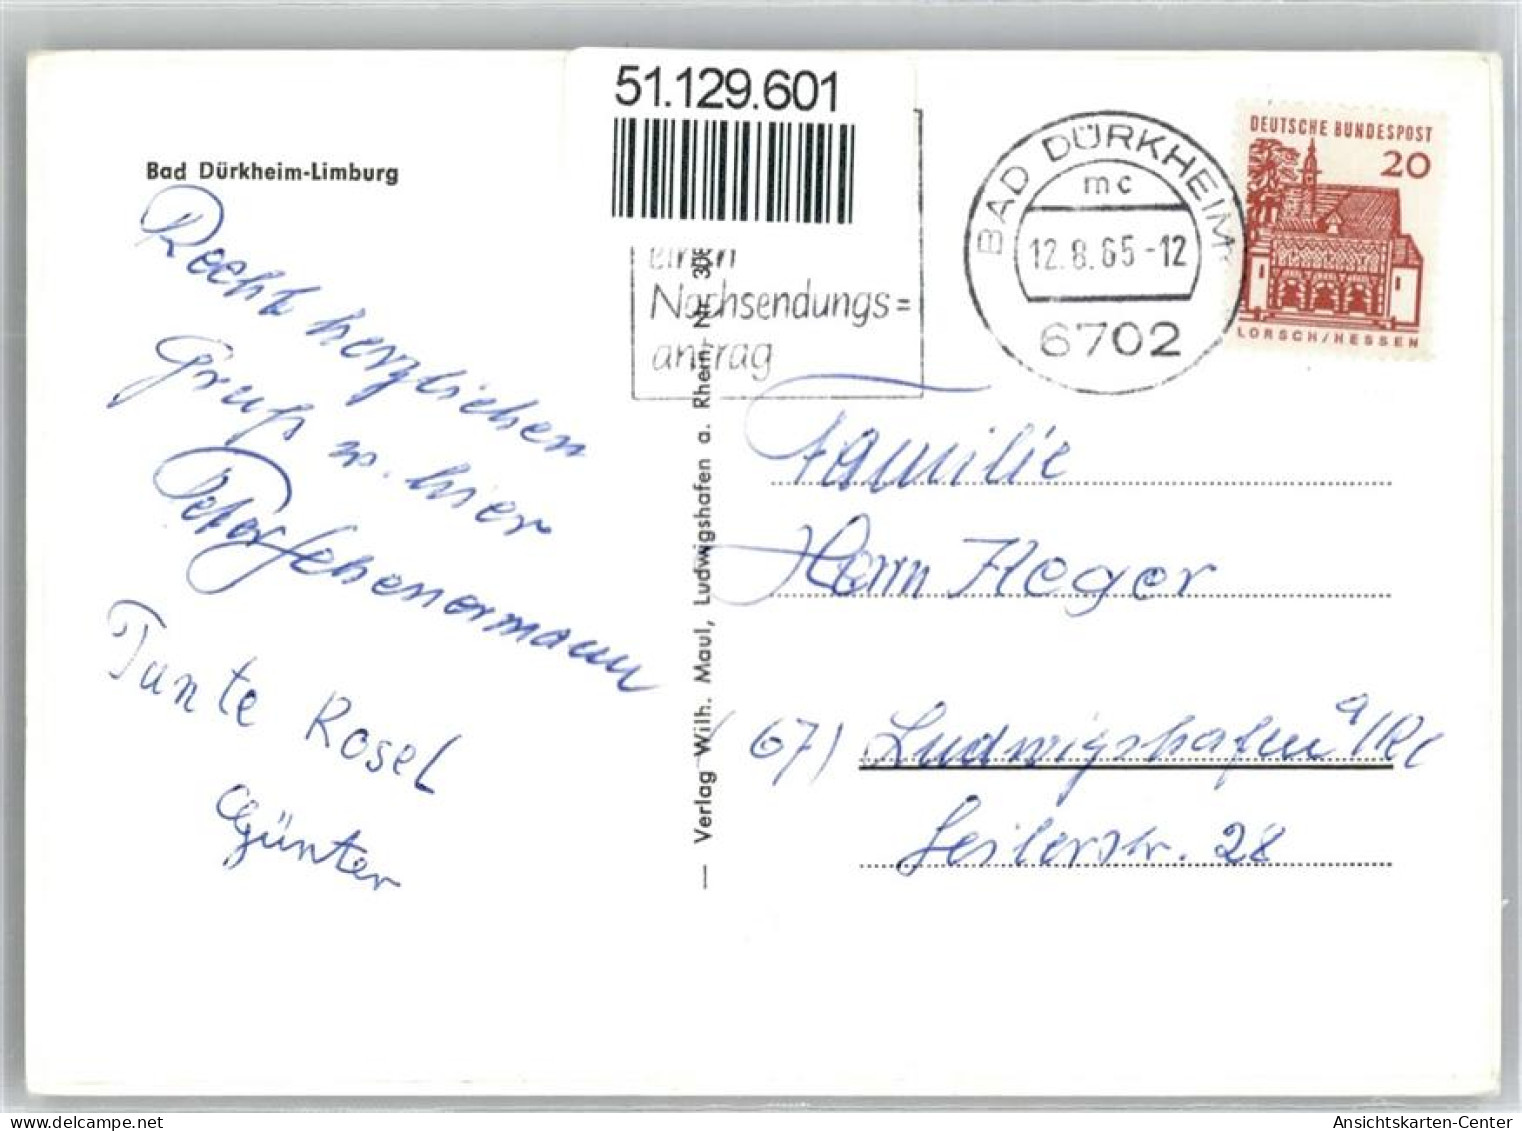 51.129.601
Bad Dürkheim-Limburg
Recht herzlichen
Gruß v. hier
Peter
Tante Rosel
Günter
einen
Nachsendungs=
antrag
BAD DÜRKHEIM
mc
12.8.65-12
6702
DEUTSCHE BUNDESPOST
20
LORSCH/HESSEN
— Verlag Wilh. Maul, Ludwigshafen a. Rhein, Nr. 308
Familie
Herm Heger
(67) Ludwigshafen a/Rh
Seilerstr. 28
Ansichtskarten-Center